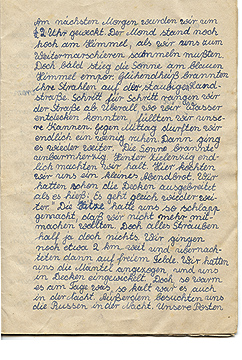 Am nächsten Morgen wurden wir um
½2 Uhr geweckt. Der Mond stand noch
hoch am Himmel, als wir uns zum
Weitermarschieren sammeln mußten.
Doch bald stieg die Sonne am blauen
Himmel empor. Glühendheiß brannten
ihre Strahlen auf die staubige Land-
straße. Schritt für Schritt ging es
der Straße ab. Überall wo wir Wasser
entdecken konnten, füllten wir unse-
re Kannen. Gegen Mittag durften wir
endlich ein wenig ruhen. Dann ging
es wieder weiter. Die Sonne brannte
unbarmherzig. Hinter
machten wir halt. Hier kochten
wir uns ein kleines Abendbrot. Wir
hatten schon die Decken ausgebreitet
als es hieß: Es geht gleich wieder wei-
ter. Die Hitze hatte uns so schlapp
gemacht, daß wir nicht mehr mit-
machen wollten. Doch alles Sträuben
half ja doch nichts. Wir gingen
noch etwa 2 km weit und übernach-
teten dann auf freiem Felde. Wir hatten
uns die Mäntel angezogen und uns
in Decken eingewickelt. Doch so warm
es am Tage war, so kalt war es auch
in der Nacht. Außerdem besuchten uns
die Russen in der Nacht. Unsere Posten